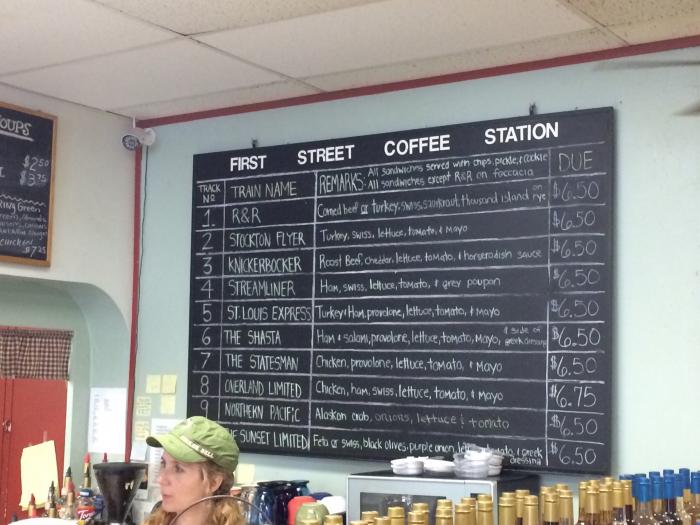 SOUPS
$2.50
$3.75
Green
chicken $7.25
FIRST STREET COFFEE STATION
TRACK No TRAIN NAME REMARKS: All sandwiches served with chips, pickle, & cookie DUE
All sandwiches except R&R on foccacia
1 R&R Corned beef or turkey, swiss, saurkraut, thousand island on rye $6.50
2 STOCKTON FLYER Turkey, swiss, lettuce, tomato, & mayo $6.50
3 KNICKERBOCKER Roast Beef, cheddar, lettuce, tomato, & horseradish sauce $6.50
4 STREAMLINER Ham, swiss, lettuce, tomato, & grey poupon $6.50
5 ST. LOUIS EXPRESS Turkey & Ham, provolone, lettuce, tomato, & mayo $6.50
6 THE SHASTA Ham & salami, provolone, lettuce, tomato, mayo, & side of greek dressing $6.50
7 THE STATESMAN Chicken, provolone, lettuce, tomato, & mayo $6.50
8 OVERLAND LIMITED Chicken, ham, swiss, lettuce, tomato, & mayo $6.75
9 NORTHERN PACIFIC Alaskan crab, onions, lettuce & tomato $6.50
THE SUNSET LIMITED Feta or swiss, black olives, purple onion, lettuce, tomato & greek dressing $6.50